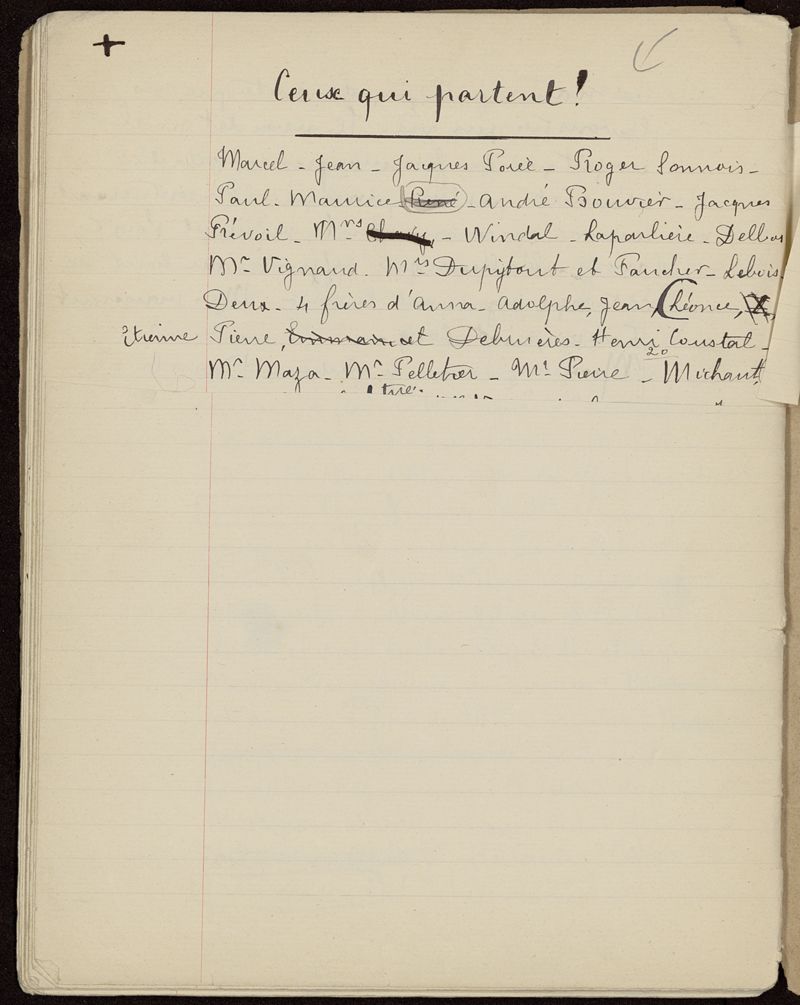 +
Ceux qui partent!
Marcel - Jean - Jacques Porée - Roger Sonnois -
Paul - Maurice René - André Bouvier - Jacques
Prévoil - Mrs - Windal - Laparlière - Delbos
Mr Vignaud. Mrs Dupytout et Faucher - Lebois
Deux - 4 frères d'Anna - Adolphe, Jean, Léonce,
Etienne Pierre, et Debrières - Henri Coustal -
20
Mr Maza - Mr Pelletier - Mr Pierre - Michaut